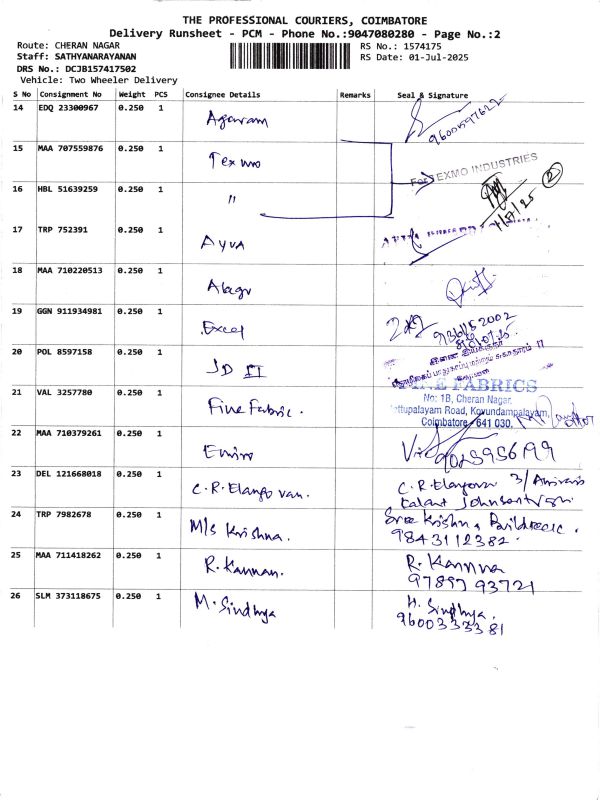 THE PROFESSIONAL COURIERS, COIMBATORE
Delivery Runsheet - PCM - Phone No.:9047080280 - Page No.:2
Route: CHERAN NAGAR
RS No.: 1574175
Staff: SATHYANARAYANAN
RS Date: 01-Jul-2025
DRS No.: DCJB157417502
Vehicle: Two Wheeler Delivery
S No Consignment No Weight PCS Consignee Details Remarks Seal & Signature
14 EDQ 23300967 0.250 1 Agaram 9600597622
15 MAA 707559876 0.250 1 Texmo
For TEXMO INDUSTRIES
16 HBL 51639259 0.250 1 "
1/7/25 2
17 TRP 752391 0.250 1 Ayva
18 MAA 710220513 0.250 1
19 GGN 911934981 0.250 1 Excel
20 POL 8597158 0.250 1 JD II
21 VAL 3257780 0.250 1 Fine Fabric.
FINE FABRICS
No: 1B, Cheran Nagar,
Mettupalayam Road, Kovundampalayam,
Coimbatore - 641 030.
22 MAA 710379261 0.250 1
23 DEL 121668018 0.250 1 C.R.Elangovan. C.R.Elangovan
24 TRP 7982678 0.250 1 M/s Krishna. Sree Krishna
9843112382.
25 MAA 711418262 0.250 1 R. Kannan. R. Kannan
97897 93721
26 SLM 373118675 0.250 1 M. Sindhya H. Sindhya.
9600333381